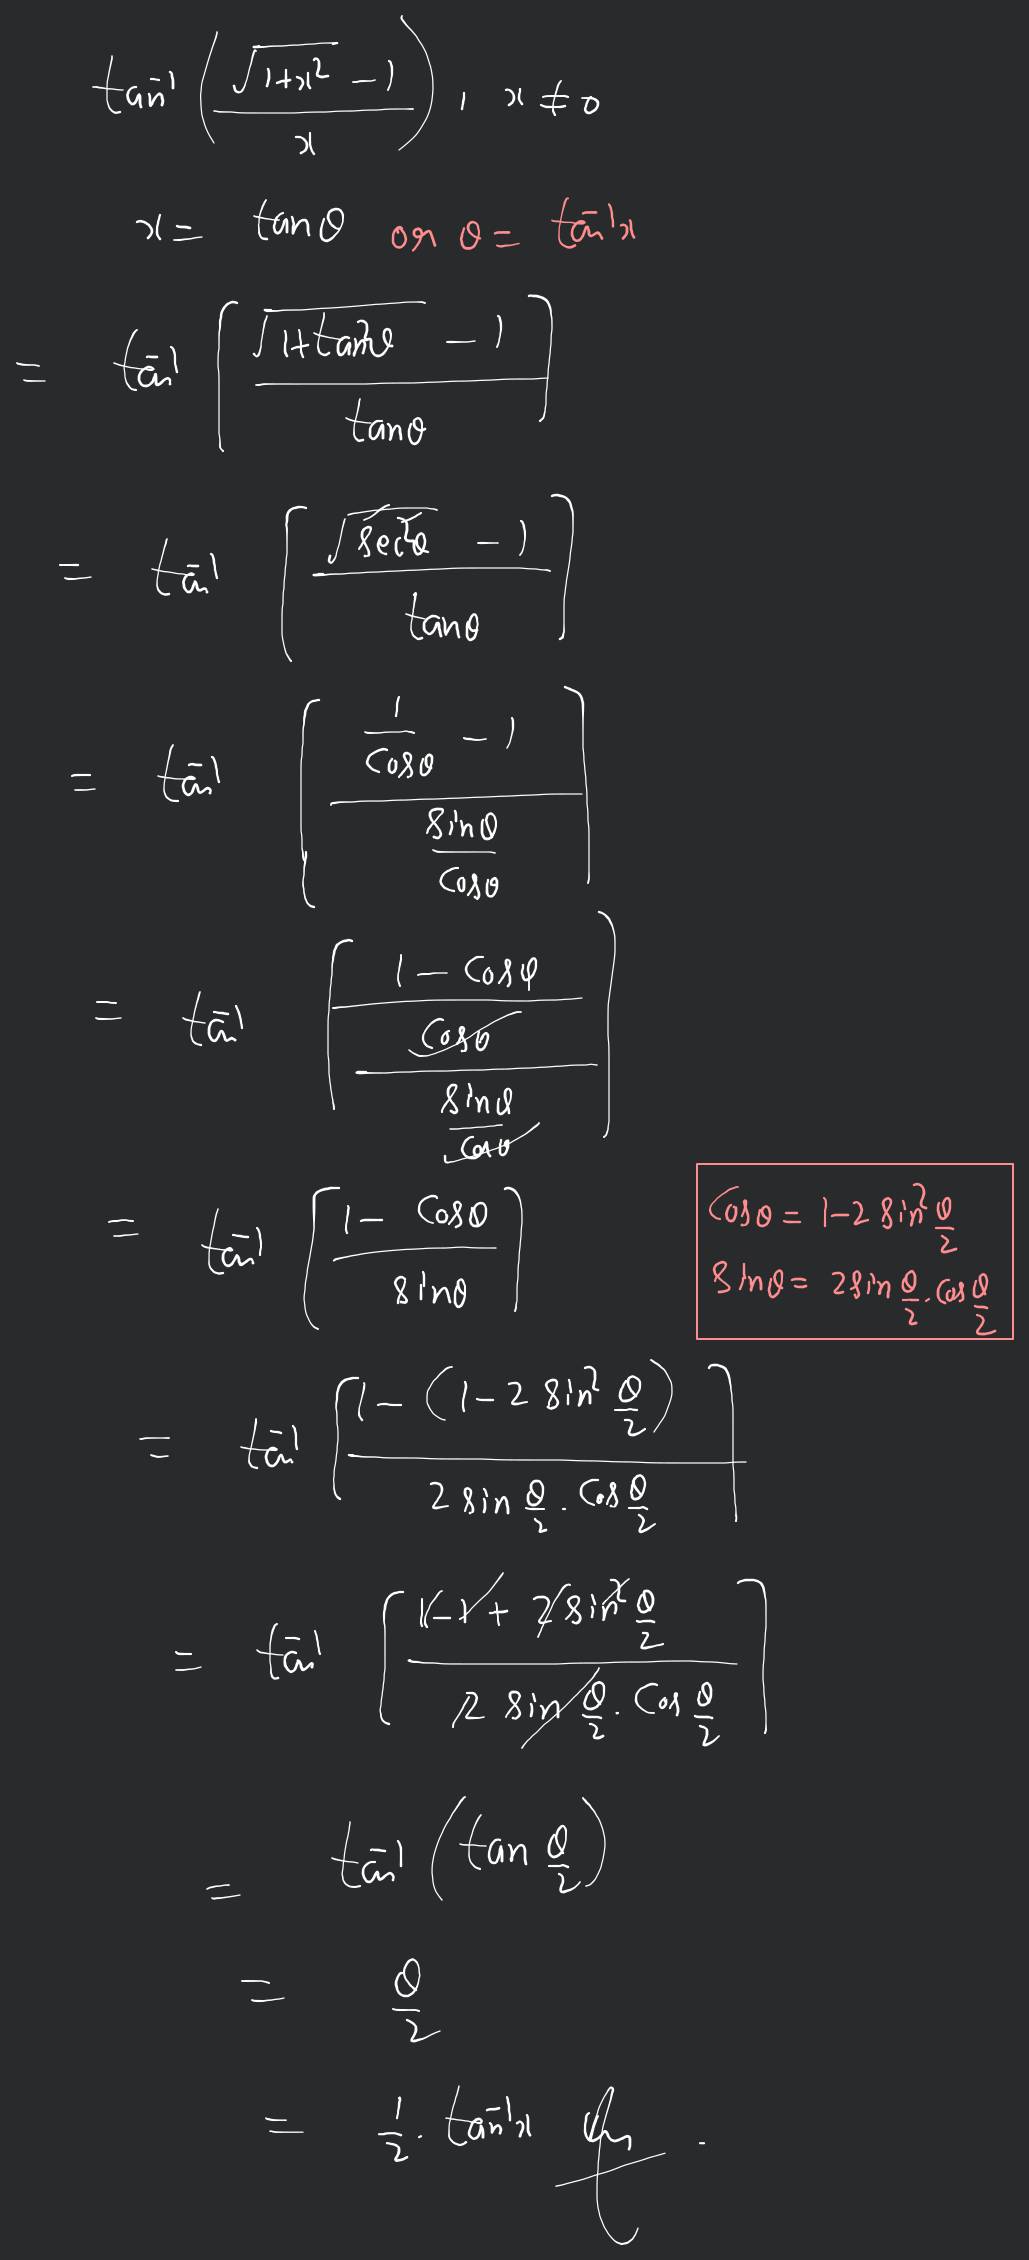 tan⁻¹ ( (√(1+x²) − 1) / x ), x ≠ 0
x = tanθ or θ = tan⁻¹x
= tan⁻¹ [ (√(1+tan²θ) − 1) / tanθ ]
= tan⁻¹ [ (√(sec²θ) − 1) / tanθ ]
= tan⁻¹ [ (1/cosθ − 1) / (sinθ/cosθ) ]
= tan⁻¹ [ ((1 − cosθ)/cosθ) / (sinθ/cosθ) ]
= tan⁻¹ [ (1 − cosθ) / sinθ ]
cosθ = 1−2 sin² θ/2
sinθ = 2sin θ/2 . cos θ/2
= tan⁻¹ [ (1 − (1−2 sin² θ/2)) / (2 sin θ/2 . cos θ/2) ]
= tan⁻¹ [ (1−1 + 2 sin² θ/2) / (2 sin θ/2 . cos θ/2) ]
= tan⁻¹ (tan θ/2)
= θ/2
= 1/2 . tan⁻¹x